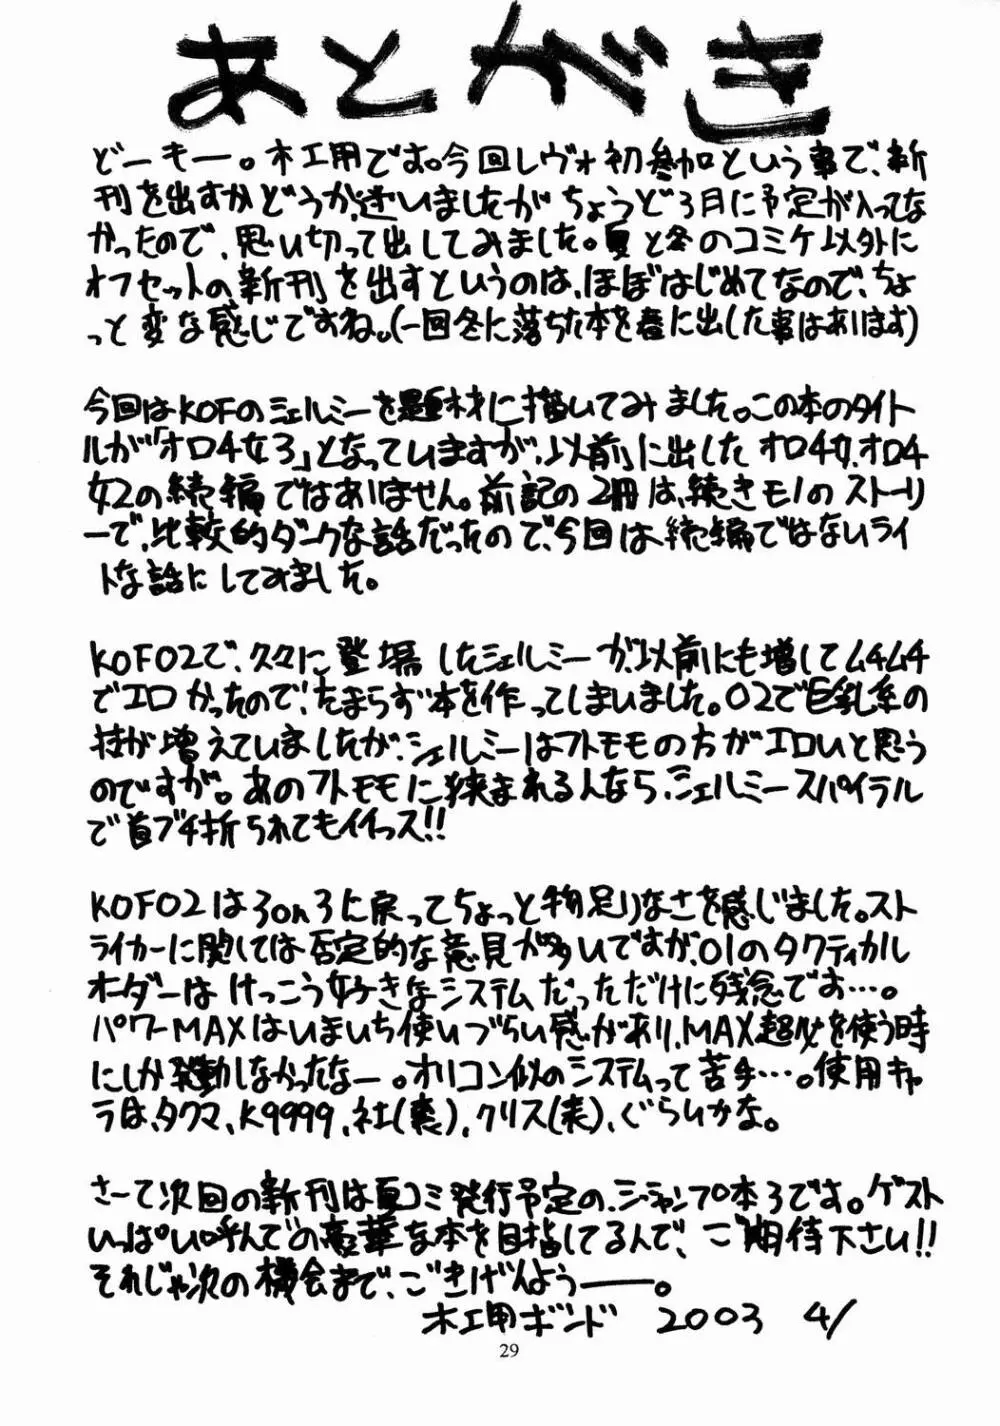 あとがき
どーもー。木工用です。今回レヴォ初参加という事で、新
刊を出すかどうか迷いましたがちょうど3月に予定が入ってな
かったので、思い切って出してみました。夏と冬のコミケ以外に
オフセットの新刊を出すというのは、ほぼはじめてなので、ちょ
っと変な感じですね。(一回冬に落ちた本を春に出した事はあります)
今回はKOFのシェルミーを題材に描いてみました。この本のタイト
ルが「オロチ女3」となっていますが、以前に出したオロチ女、オロチ
女2の続編ではありません。前記の2冊は、続きモノのストーリ
ーで、比較的ダークな話だったので、今回は続編ではないライ
トな話にしてみました。
KOF02で、久々に登場したシェルミーが、以前にも増してムチムチ
でエロかったので、たまらず本を作ってしまいました。02で巨乳系の
技が増えていましたが、シェルミーはフトモモの方がエロいと思う
のですが。あのフトモモに挟まれる人なら、シェルミースパイラル
で首ブチ折られてもイイっス!!
KOF02は3on3に戻ってちょっと物足りなさを感じました。スト
ライカーに関しては否定的な意見が多いですが、01のタクティカル
オーダーはけっこう好きなシステムだっただけに残念でお…。
パワーMAXはいまいち使いづらい感があり、MAX超必を使う時
にしか発動しなかったなー。オリコン似のシステムって苦手…。使用キャ
ラは、タクマ、K9999、社(裏)、クリス(表)、ぐらいかな。
さーて次回の新刊は夏コミ発行予定の、ジャンプ本3です。ゲスト
いっぱい呼んでの豪華な本を目指してるんで、ご期待下さい!!
それじゃ次の機会まで、ごきげんよう――。
木工用ボンド 2003 4/
29